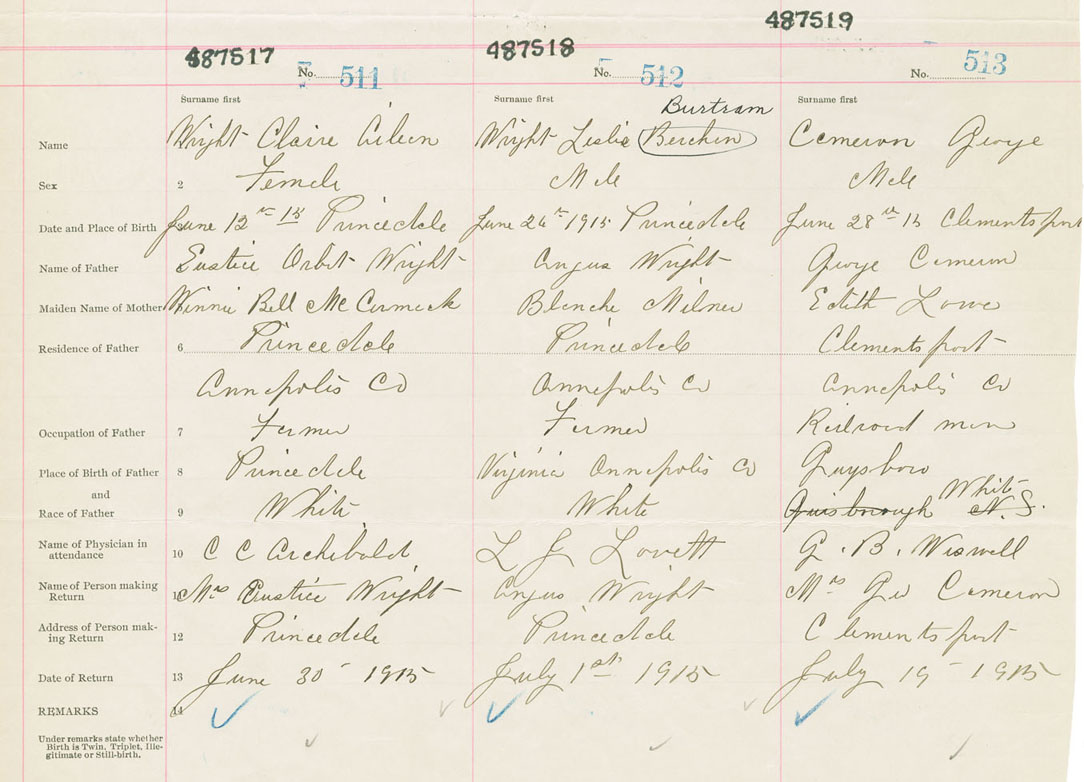 487519
487517
487518
No. 511
No. 512
No. 513
Surname first
Surname first
Surname first
Burtram
Name Wright Claire Aileen Wright Leslie Cameron George
Sex 2 Female Male Male
Date and Place of Birth June 12th 15 Princedale June 26th 1915 Princedale June 28th 15 Clementsport
Name of Father Eustice Orbit Wright Angus Wright George Cameron
Maiden Name of Mother Winnie Bell McCormack Blanche Milner Edith Lowe
Residence of Father 6 Princedale Princedale Clementsport
Annapolis Co Annapolis Co Annapolis Co
Occupation of Father 7 Farmer Farmer Railroad man
Place of Birth of Father 8 Princedale Virginia Annapolis Co Guysboro
and White
Race of Father 9 White White Guisborough N.S.
Name of Physician in
attendance 10 C C Archibald L J Lovett G. B. Wiswell
Name of Person making
Return Mrs Eustice Wright Angus Wright Mrs Geo Cameron
Address of Person mak-
ing Return 12 Princedale Princedale Clementsport
Date of Return 13 June 30 1915 July 1st 1915 July 19 1915
REMARKS 14
Under remarks state whether
Birth is Twin, Triplet, Ille-
gitimate or Still-birth.